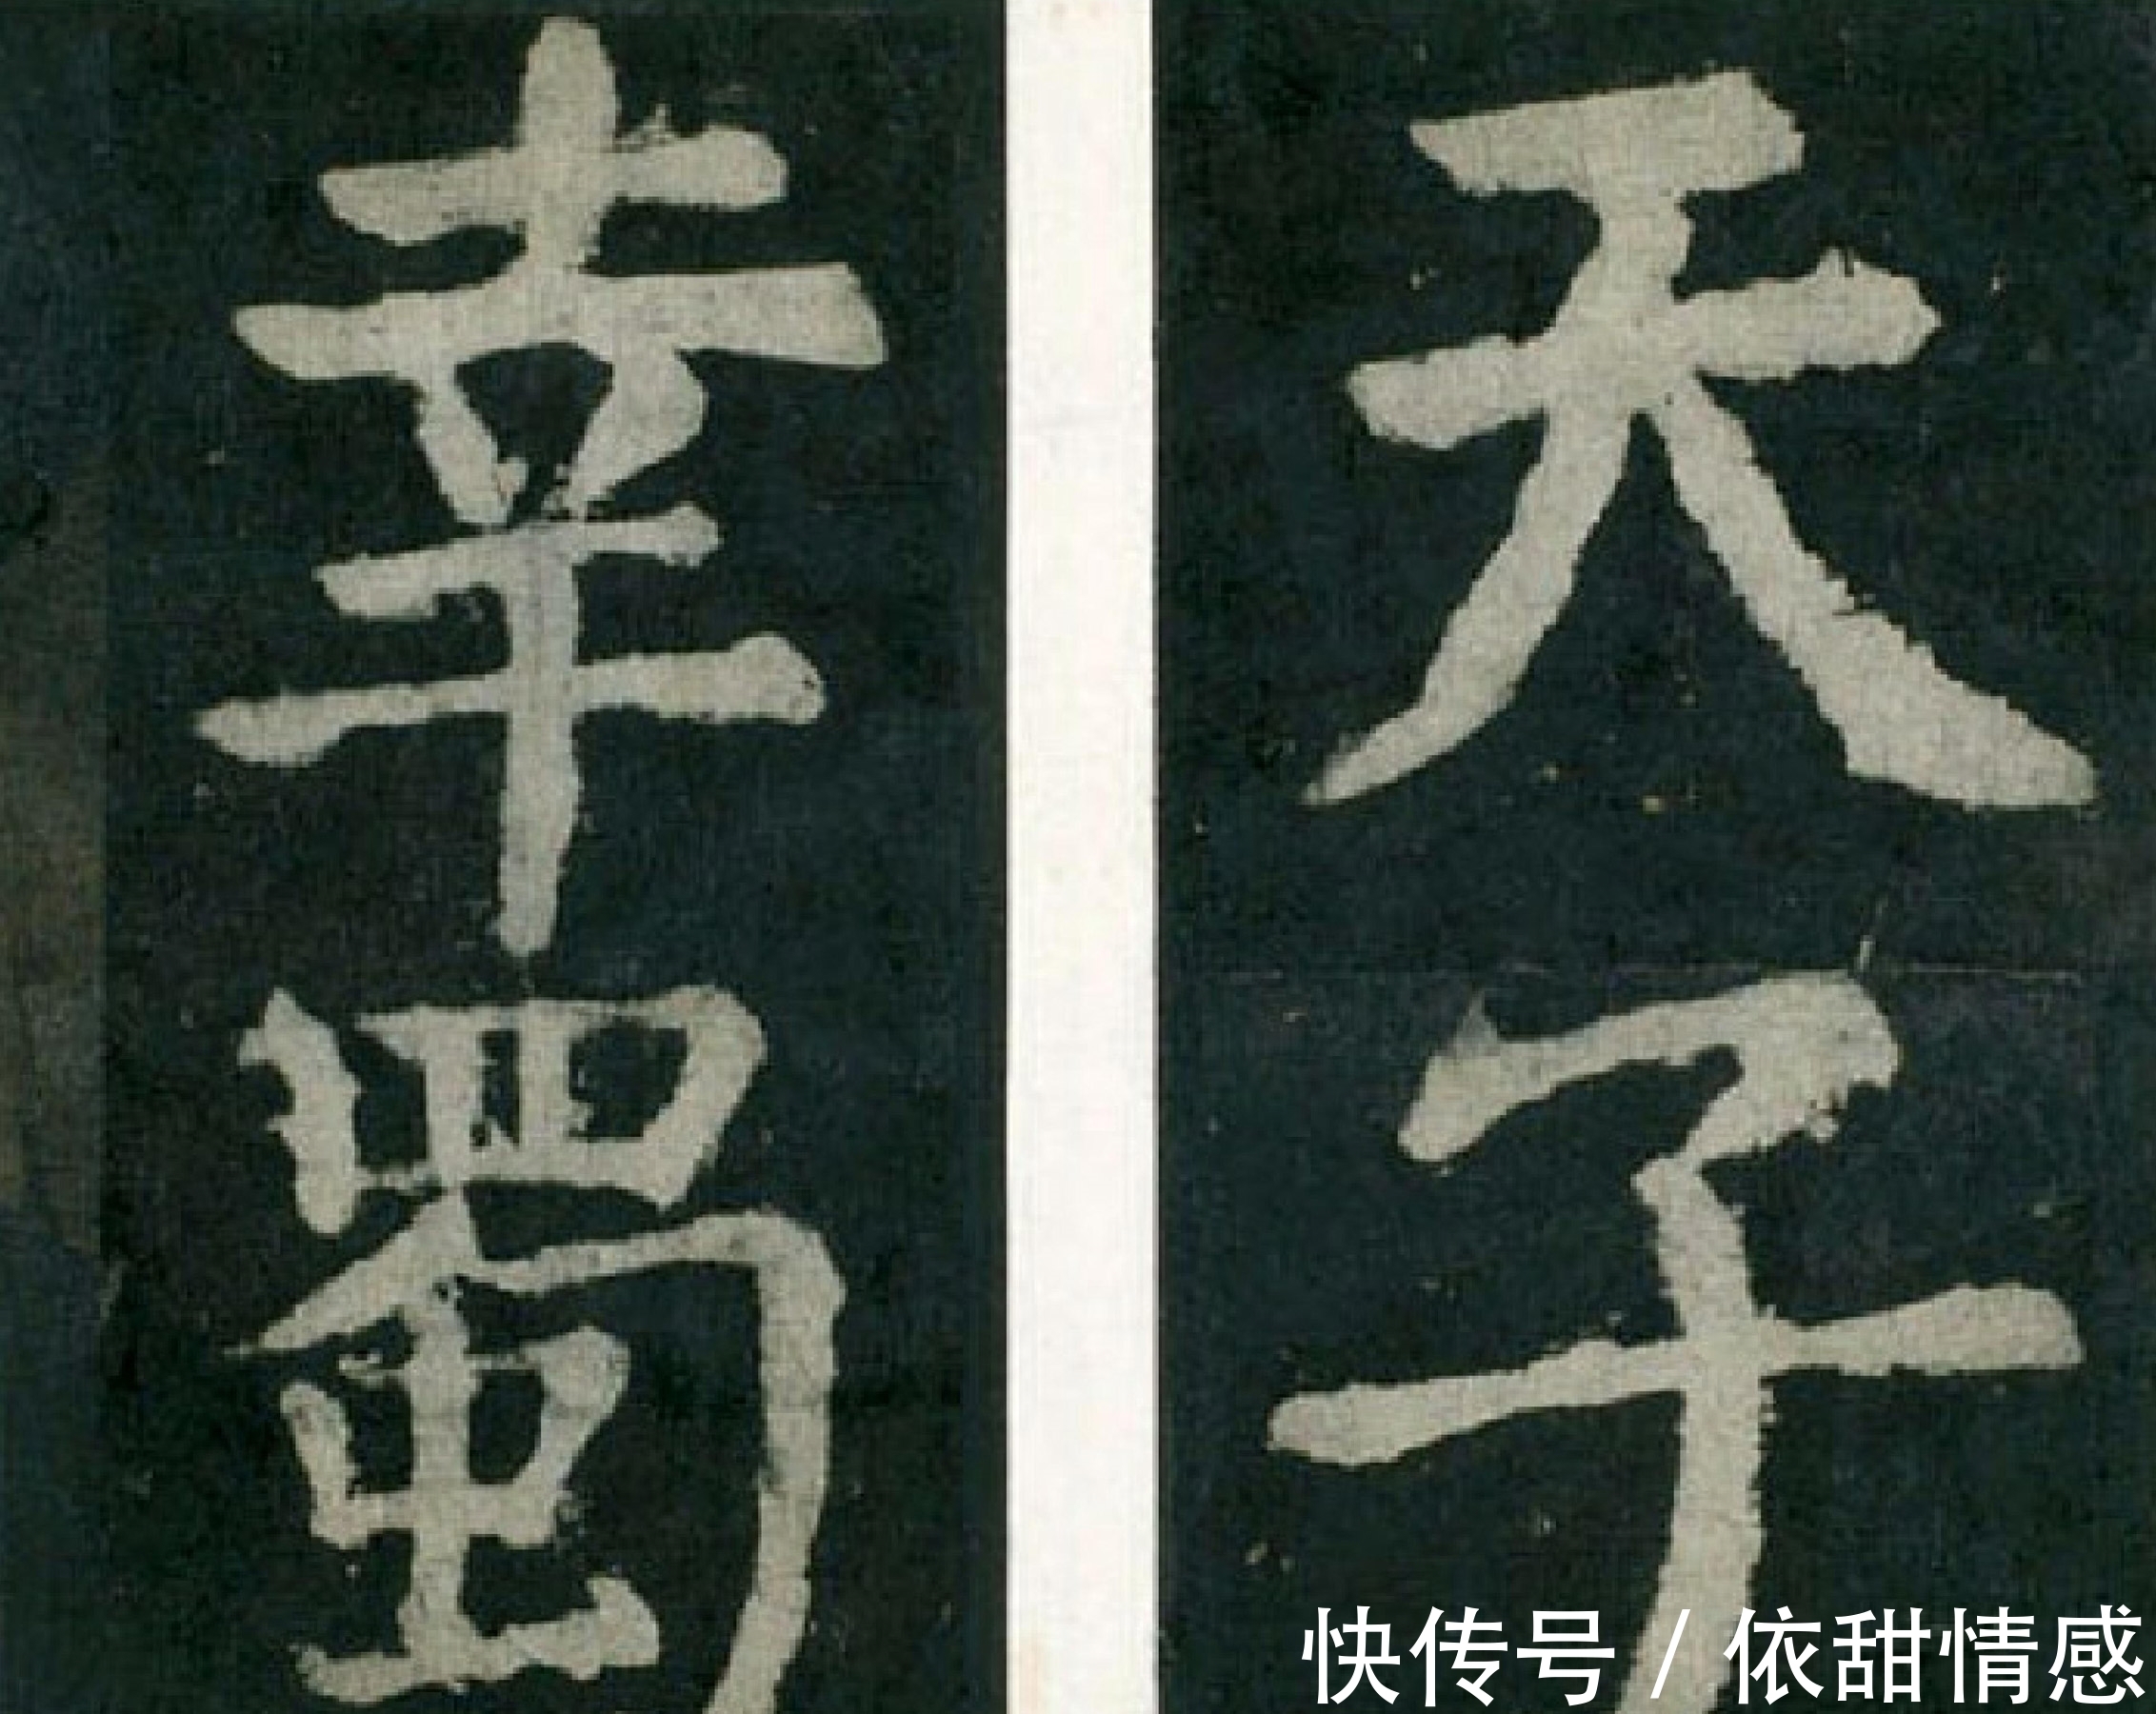 天子
幸蜀
快传号 / 依甜情感